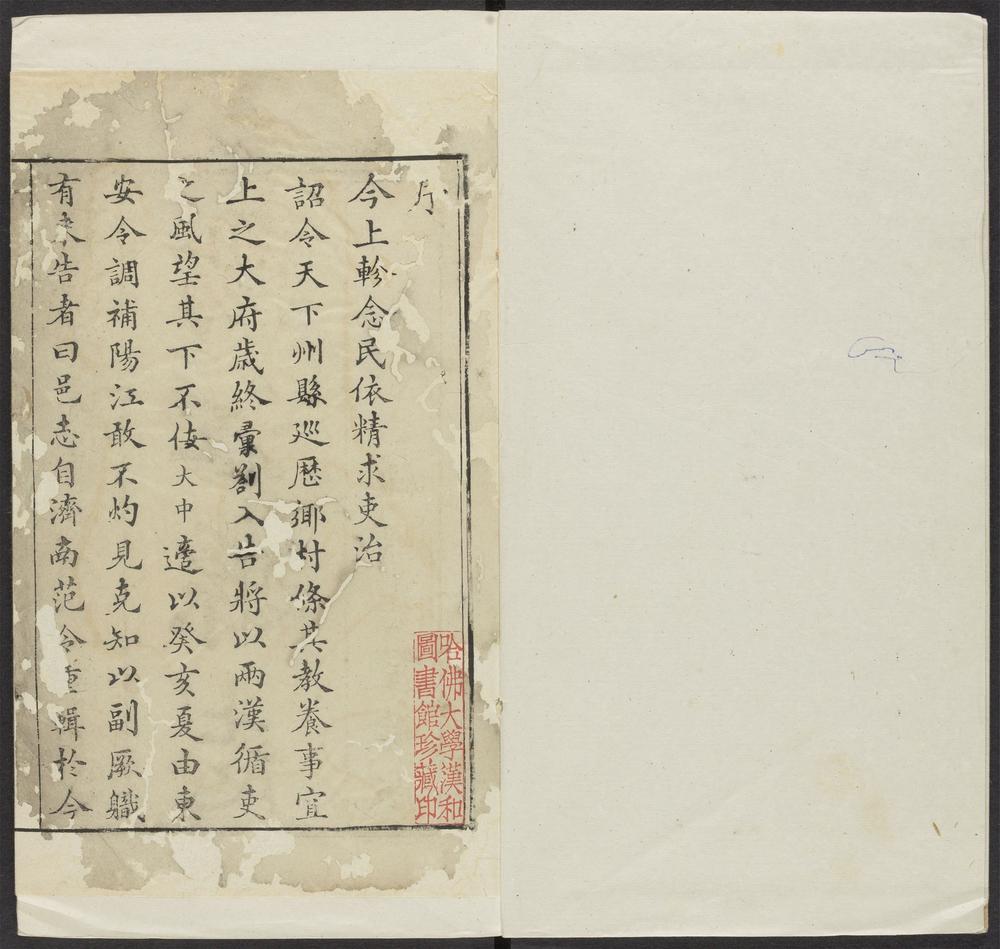 序
今上軫念民依精求吏治
詔令天下州縣廵歷鄉村條其教養事宜
上之大府歲終彙劄入告將以兩漢循吏
之風望其下不佞大中適以癸亥夏由東
安令調補陽江敢不灼見克知以副厥軄
有來告者曰邑志自濟南范令重輯於今
哈佛大學漢和
圖書館珍藏印